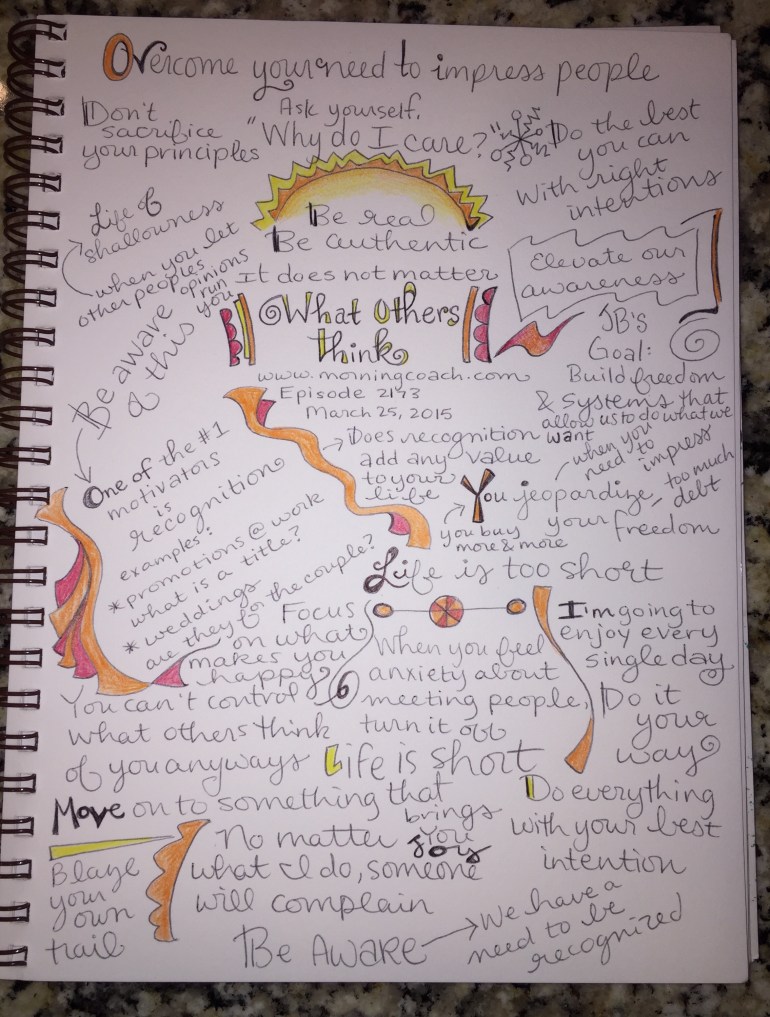 Overcome your need to impress people
Don't
sacrifice
your principles
Ask yourself,
"Why do I care?"
Do the best
you can
With right
intentions
Life of
shallowness
when you let
other peoples
opinions
run
you
Be real
Be authentic
It does not matter
What Others
Think
www.morningcoach.com
Episode 2173
March 25, 2015
Elevate our
awareness
JB's
Goal:
Build freedom
& Systems that
allow us to do what we
want
Be aware
of this
One of the #1
motivators
is
recognition
examples:
* promotions @ work
what is a title?
* weddings
are they for the couple?
Does recognition
add any value
to your
life
You jeopardize
your freedom
when you
need to
impress
too much
debt
you buy
more & more
Life is too short
Focus
on what
makes you
happy
When you feel
anxiety about
meeting people,
turn it off
I'm going to
enjoy every
single day
Do it
your
way
You can't control
what others think
of you anyways
Life is short
Move on to something that
brings
you
joy
Do everything
with your best
intention
Blaze
your
own
trail
No matter
what I do, someone
will complain
Be Aware
We have a
need to be
recognized